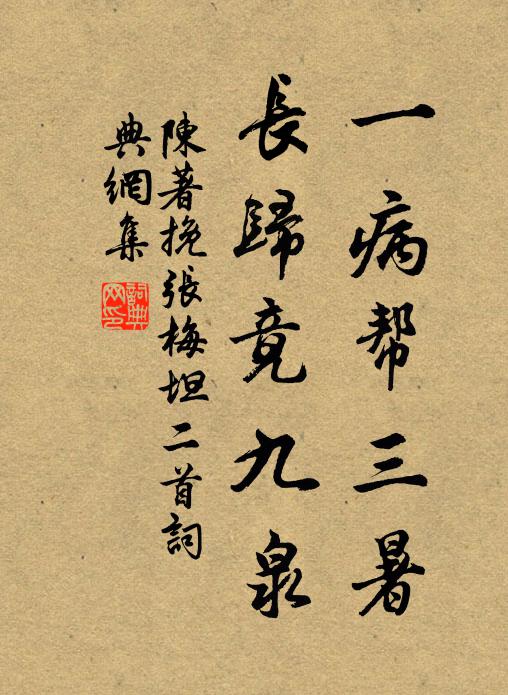 一病帮三暑
長歸竟九泉
陳著挽張梅坦二首詞
典網集
詞典網印